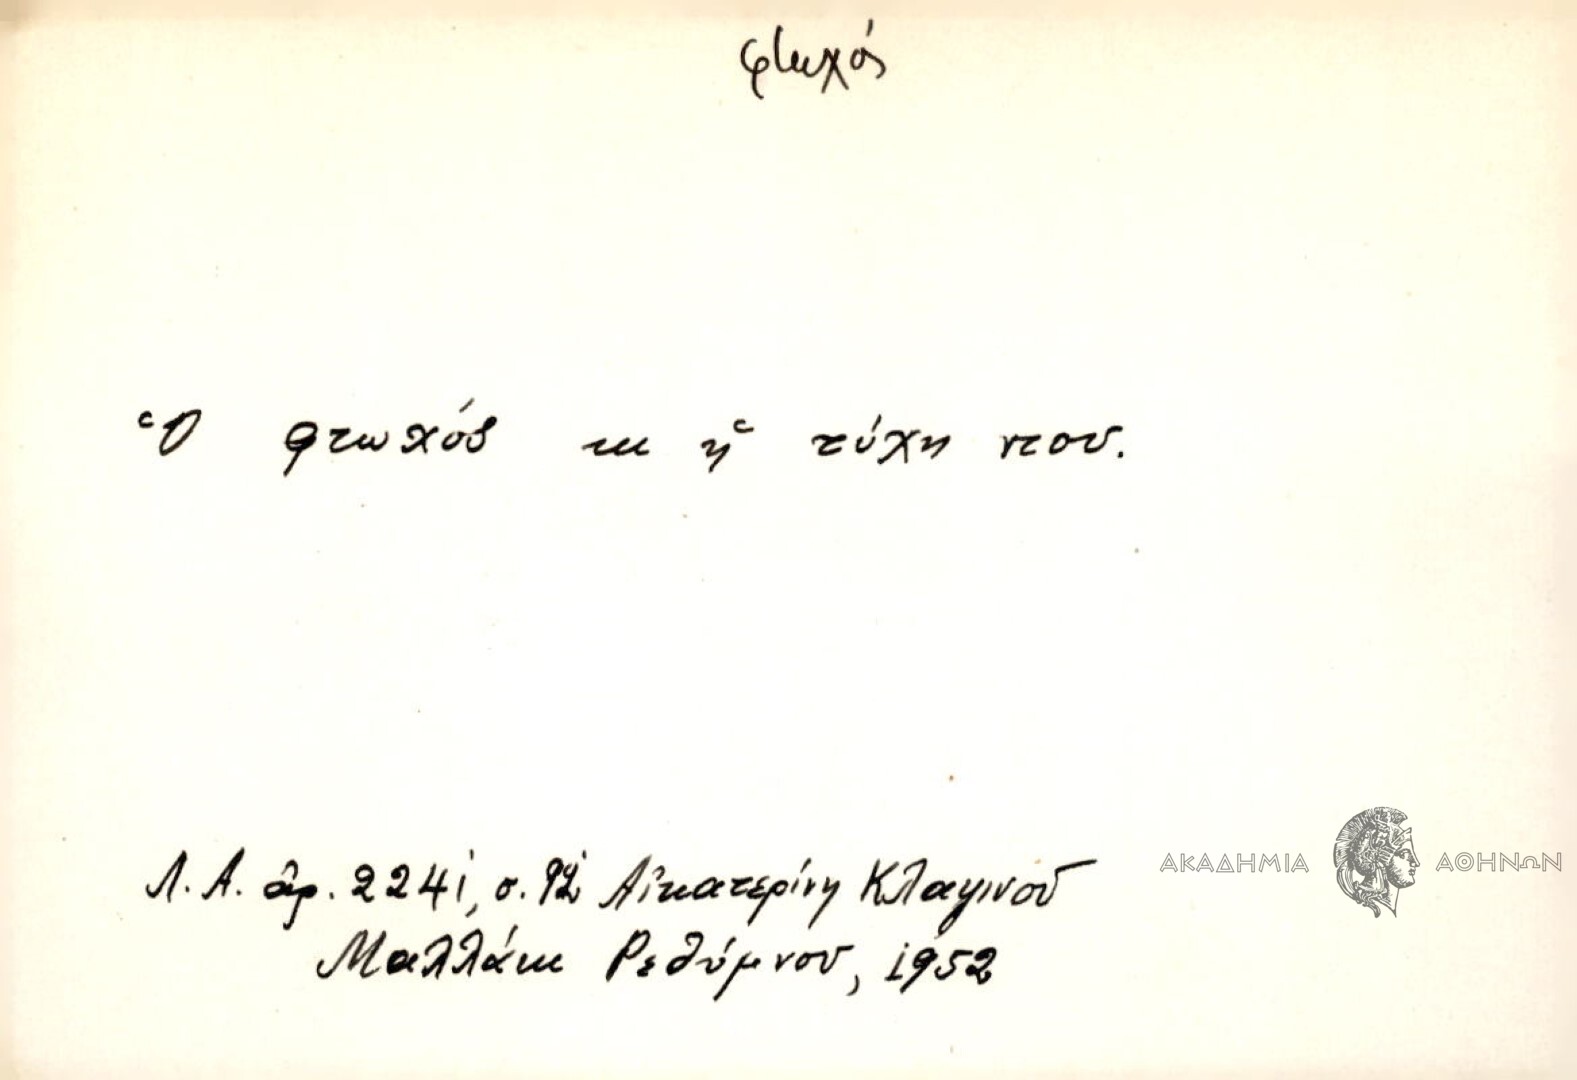 φτωχός
Ὁ φτωχός κι ἡ τύχη ντου.
Λ. Α. ἀρ. 2241, σ. 92 Αἰκατερίνη
ΑΚΑΔΗΜΙΑ ΑΘΗΝΩΝ
Ρεθύμνου, 1952